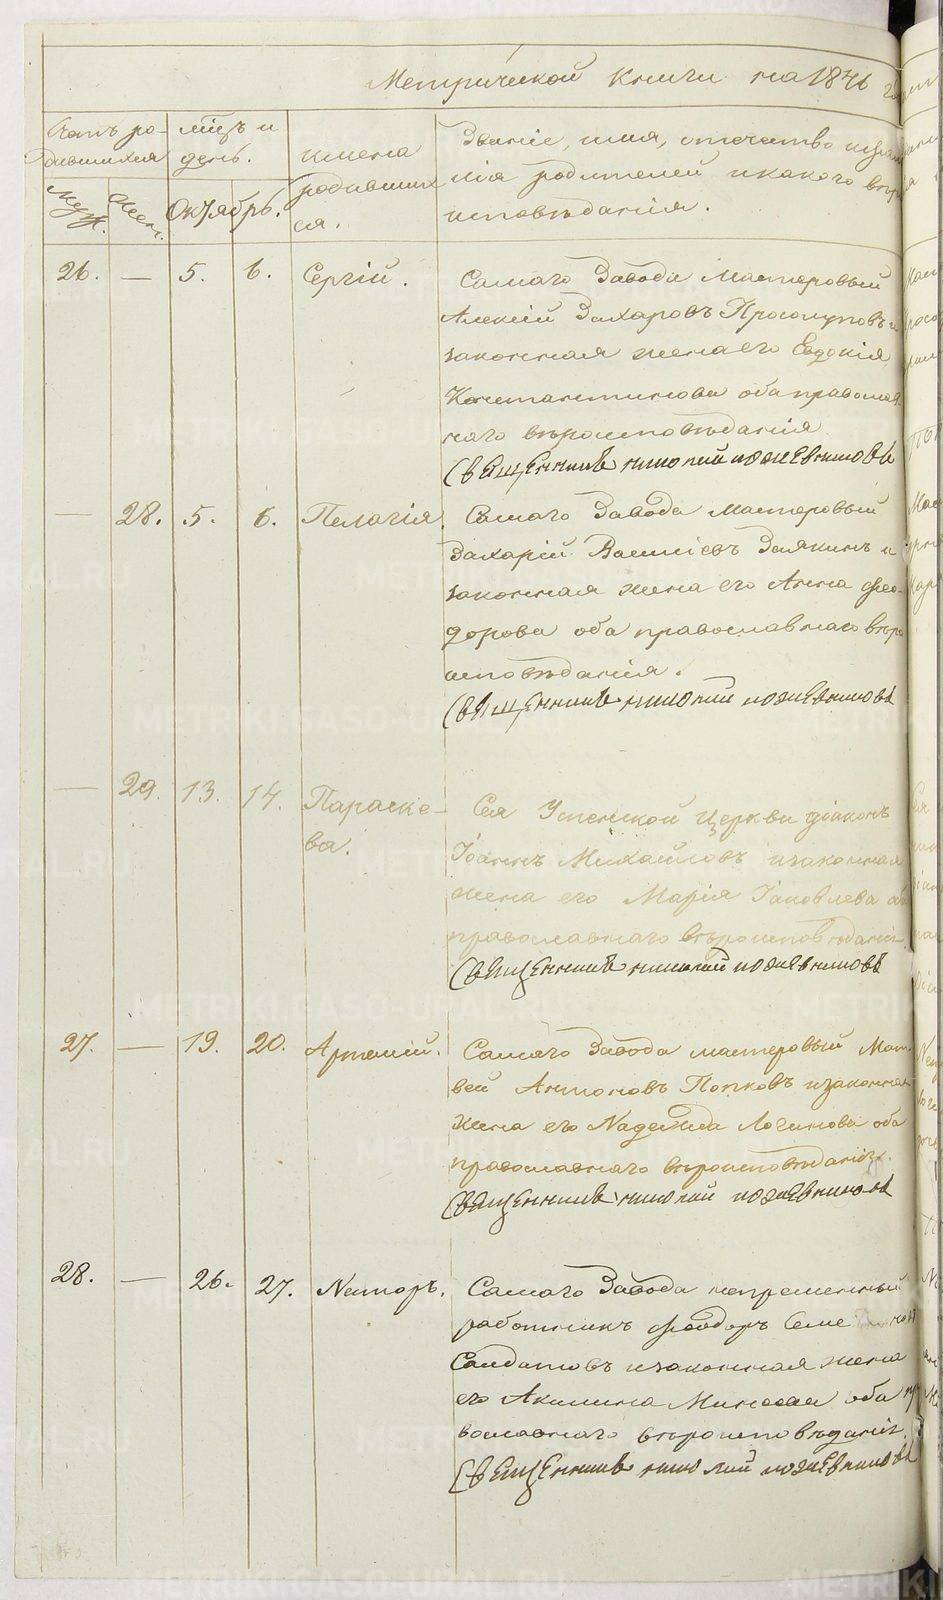 Метрической книги на 1846
Счетъ ро-
дившихся
мѣцъ и
день.
имена
родивших
ся.
Званіе, имя, отечество
нія родителей и какого вѣро
исповѣданія.
муж.
жен.
Октябрь.
26. — 5. 6. Сергій. Самаго Завода Мастеровый
Алексій Захаровъ Просолуповъ и
законная жена его Евдокія
Константинова оба православ
наго вѣроисповѣданія
Священникъ Николай Кожевниковъ
— 28. 5. 6. Пелагія. Самаго Завода Мастеровый
Захарій Василіевъ Зылкинъ и
законная жена его Анна Ѳео-
дорова оба православнаго вѣро
исповѣданія.
Священникъ Николай Кожевниковъ
— 29. 13. 14. Параске- Сея Успенской Церкви діаконъ
ва. Іоаннъ Михайловъ и законная
жена его Марія Іаковлева оба
православнаго вѣроисповѣданія
Священникъ Николай Кожевниковъ
27. — 19. 20. Артемій. Самаго Завода мастеровый Мат
вей Антоновъ Попковъ и законная
жена его Надежда Логинова оба
православнаго вѣроисповѣданія.
Священникъ Николай Кожевниковъ
28. — 26. 27. Несторъ. Самаго Завода непременный
работникъ Ѳеодоръ Семе
Солдатовъ и законная жена
его Акилина Минеева оба пр
вославнаго вѣроисповѣданія.
Священникъ Николай Кожевниковъ
METRIKI.GASO-URAL.RU